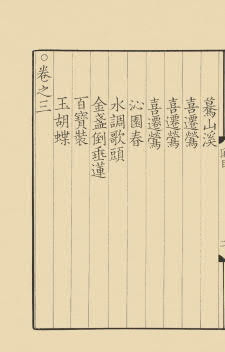 驀山溪
喜遷鶯
喜遷鶯
喜遷鶯
沁園春
水調歌頭
金盞倒垂蓮
百寶裝
玉胡蝶
○卷之三